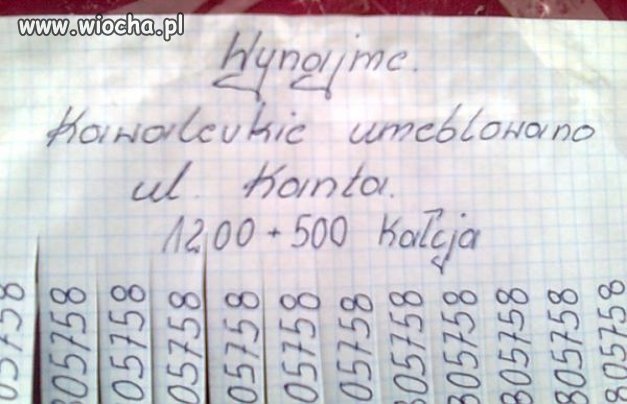 www.wiocha.pl
Wynajme.
Kawalerkie umeblowano
ul. Kanta.
1200 + 500 Kałcja
05758
805758
05758
05758
05758
05758
05758
805758
805758
805758
805758
805758